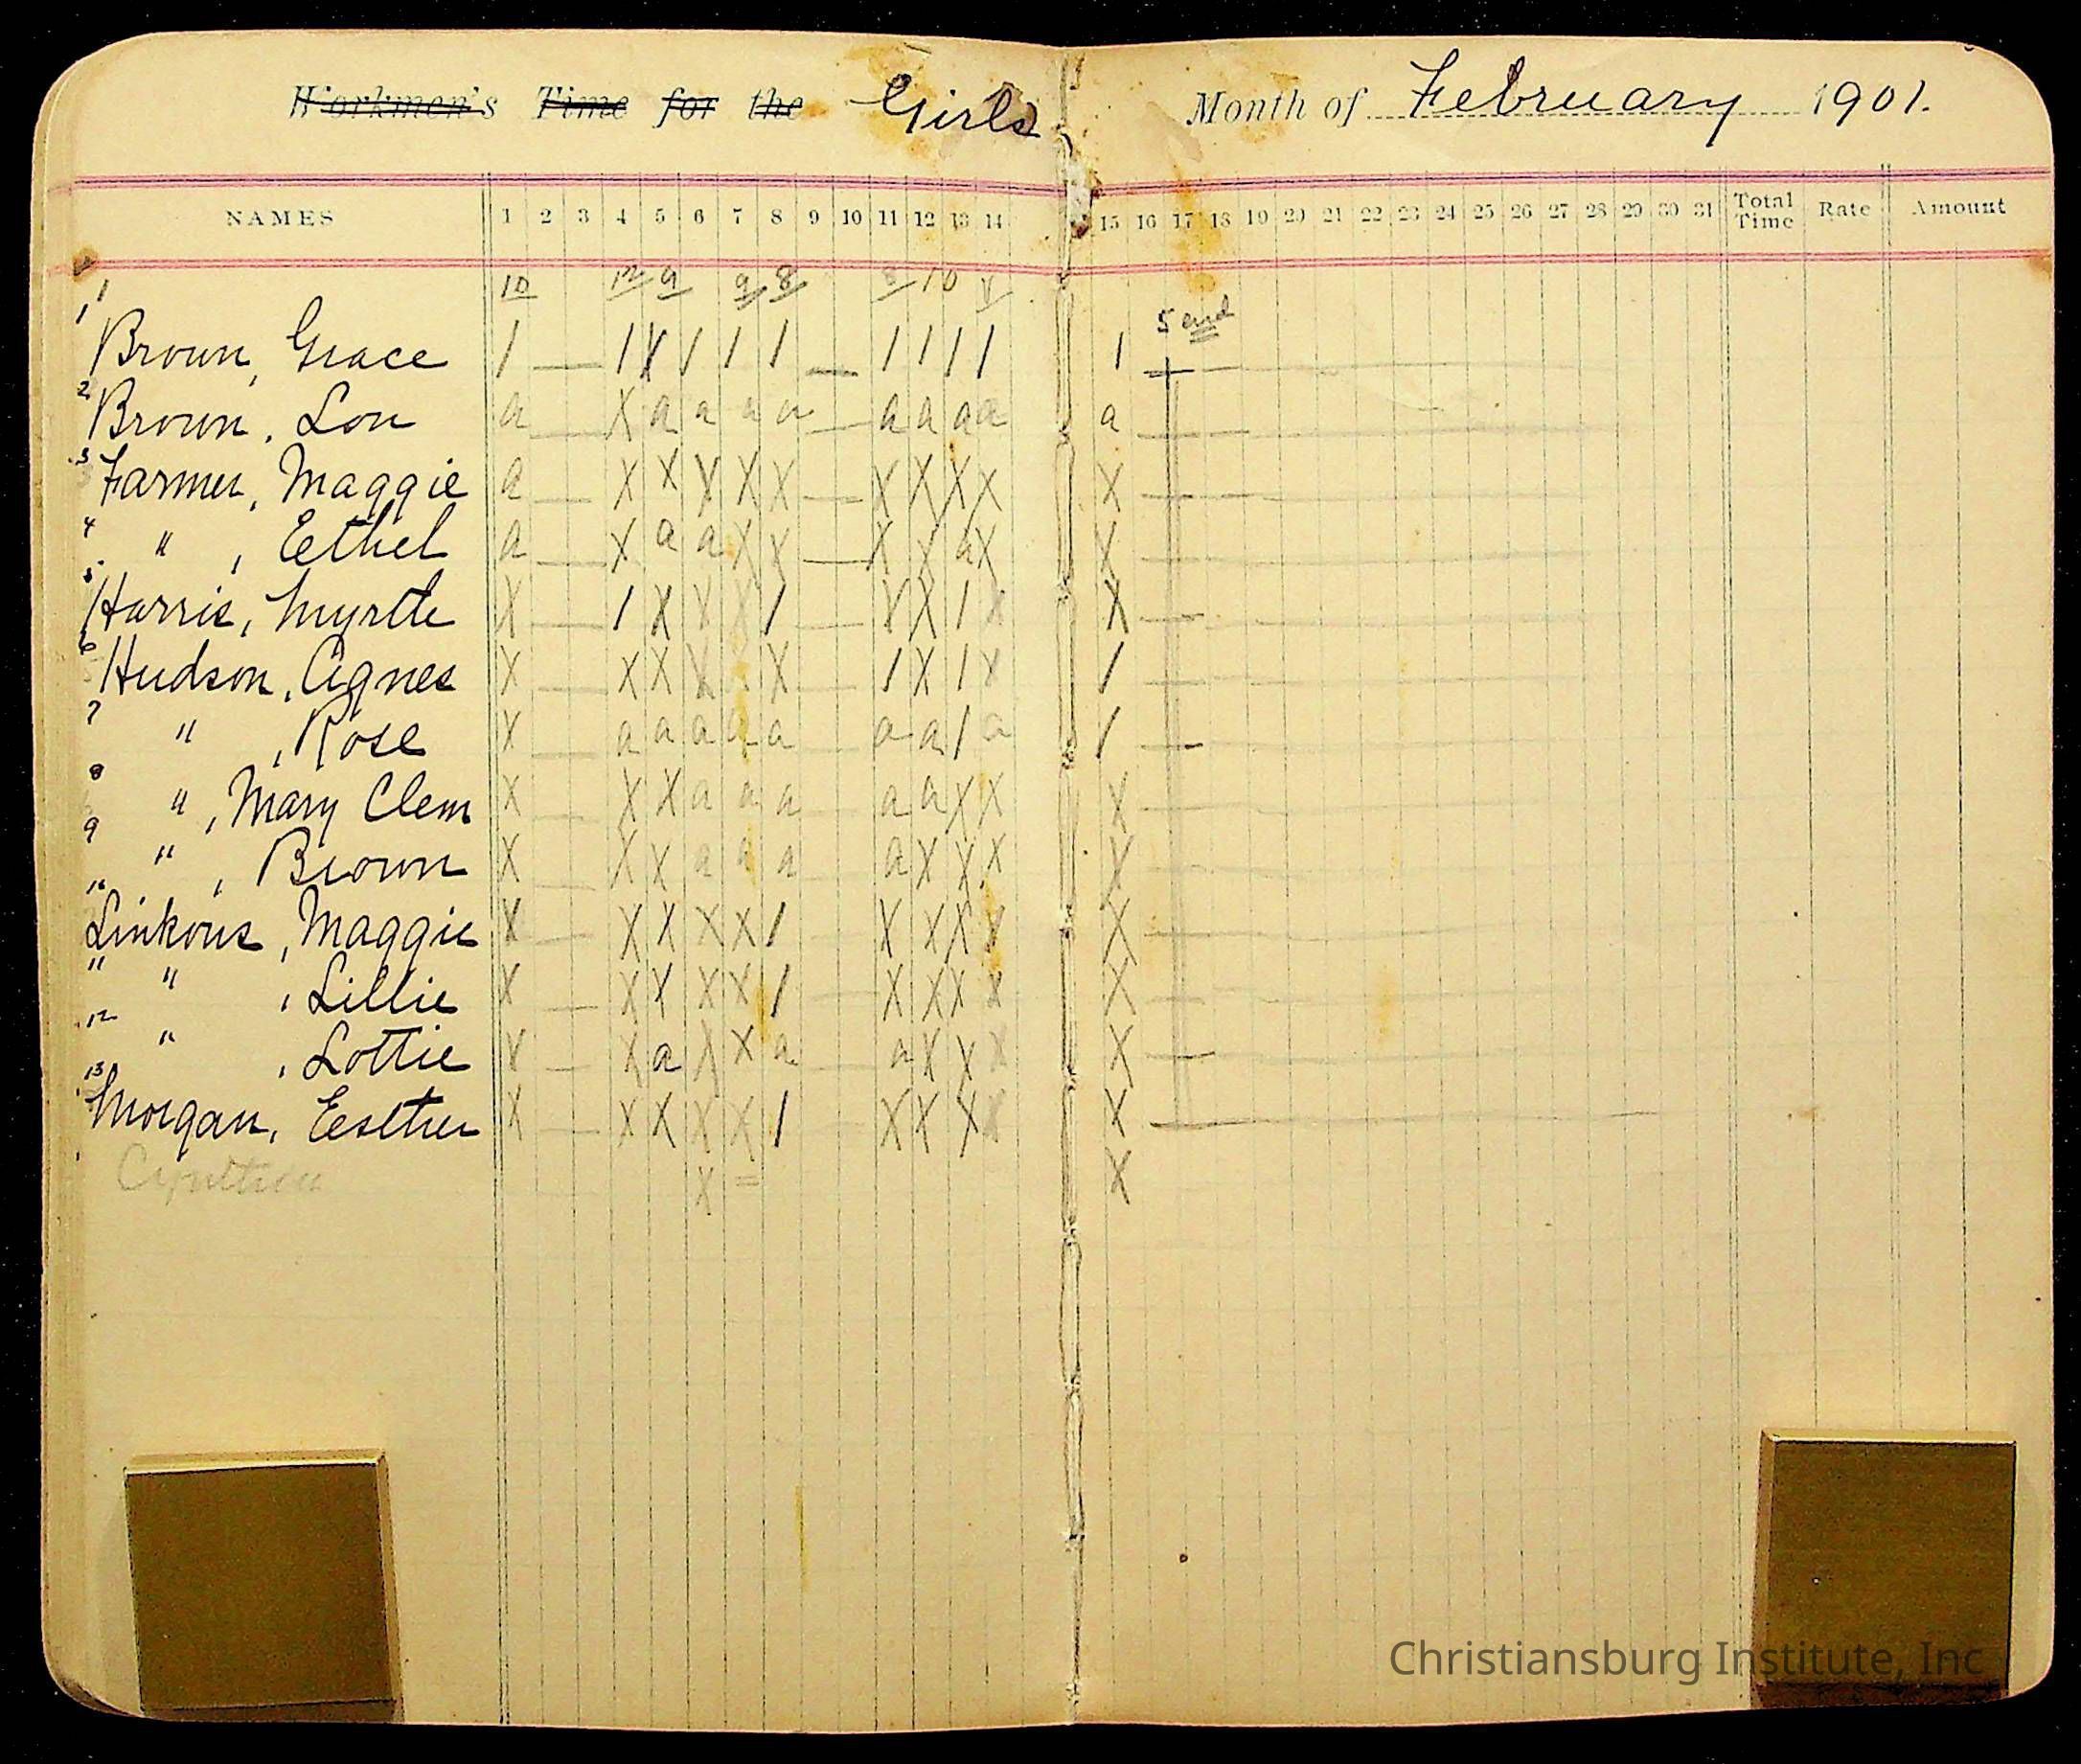 Workmen's Time for the Girls Month of February 1901.
NAMES 1 2 3 4 5 6 7 8 9 10 11 12 13 14 15 16 17 18 19 20 21 22 23 24 25 26 27 28 29 30 31 Total Time Rate Amount
1 10 12 9 9 8 8 10
1 Brown, Grace 1 — 1 X 1 1 1 — 1 1 1 1 1 5 end
2 Brown, Lon a — X a a a a — a a a a a —
3 Farmer, Maggie a — X X X X X — X X X X X —
4 " , Eethel a — X a a X X — X X a X X —
5 Harris, Myrtle X — 1 X X X 1 — X X 1 X X —
6 Hudson, Agnes X — X X X X X — 1 X 1 X 1 —
7 " , Rose X — a a a a a — a a 1 a 1 —
8 " , Mary Clem X — X X a a a — a a X X X —
9 " , Brown X — X X a a a a X X X X —
10 Linkous, Maggie X — X X X X 1 X X X X X —
11 " , Lillie X — X X X X 1 — X X X X X —
12 " , Lottie X — X a X X a — a X X X X —
13 Morgan, Eesther X — X X X X 1 X X X X X —
X = X
Christiansburg Institute, Inc